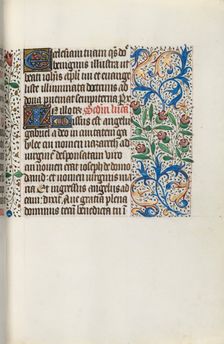 Ecclesiam tuam qs do
benignus illustra ut
beati iohis apli tui et euange
liste illuminata doctrinis ad
dona perueniat sempiterna Per
Missus est angelus
gabriel a deo in ciuitatem ga
lylee cui nomen nazareth ad
uirginem desponsatam uiro
cui nomen erat ioseph de domo
dauid et nomen uirginis maria
Et ingressus angelus ad
eam dixit Aue gratia plena
dominus tecum benedicta tu i